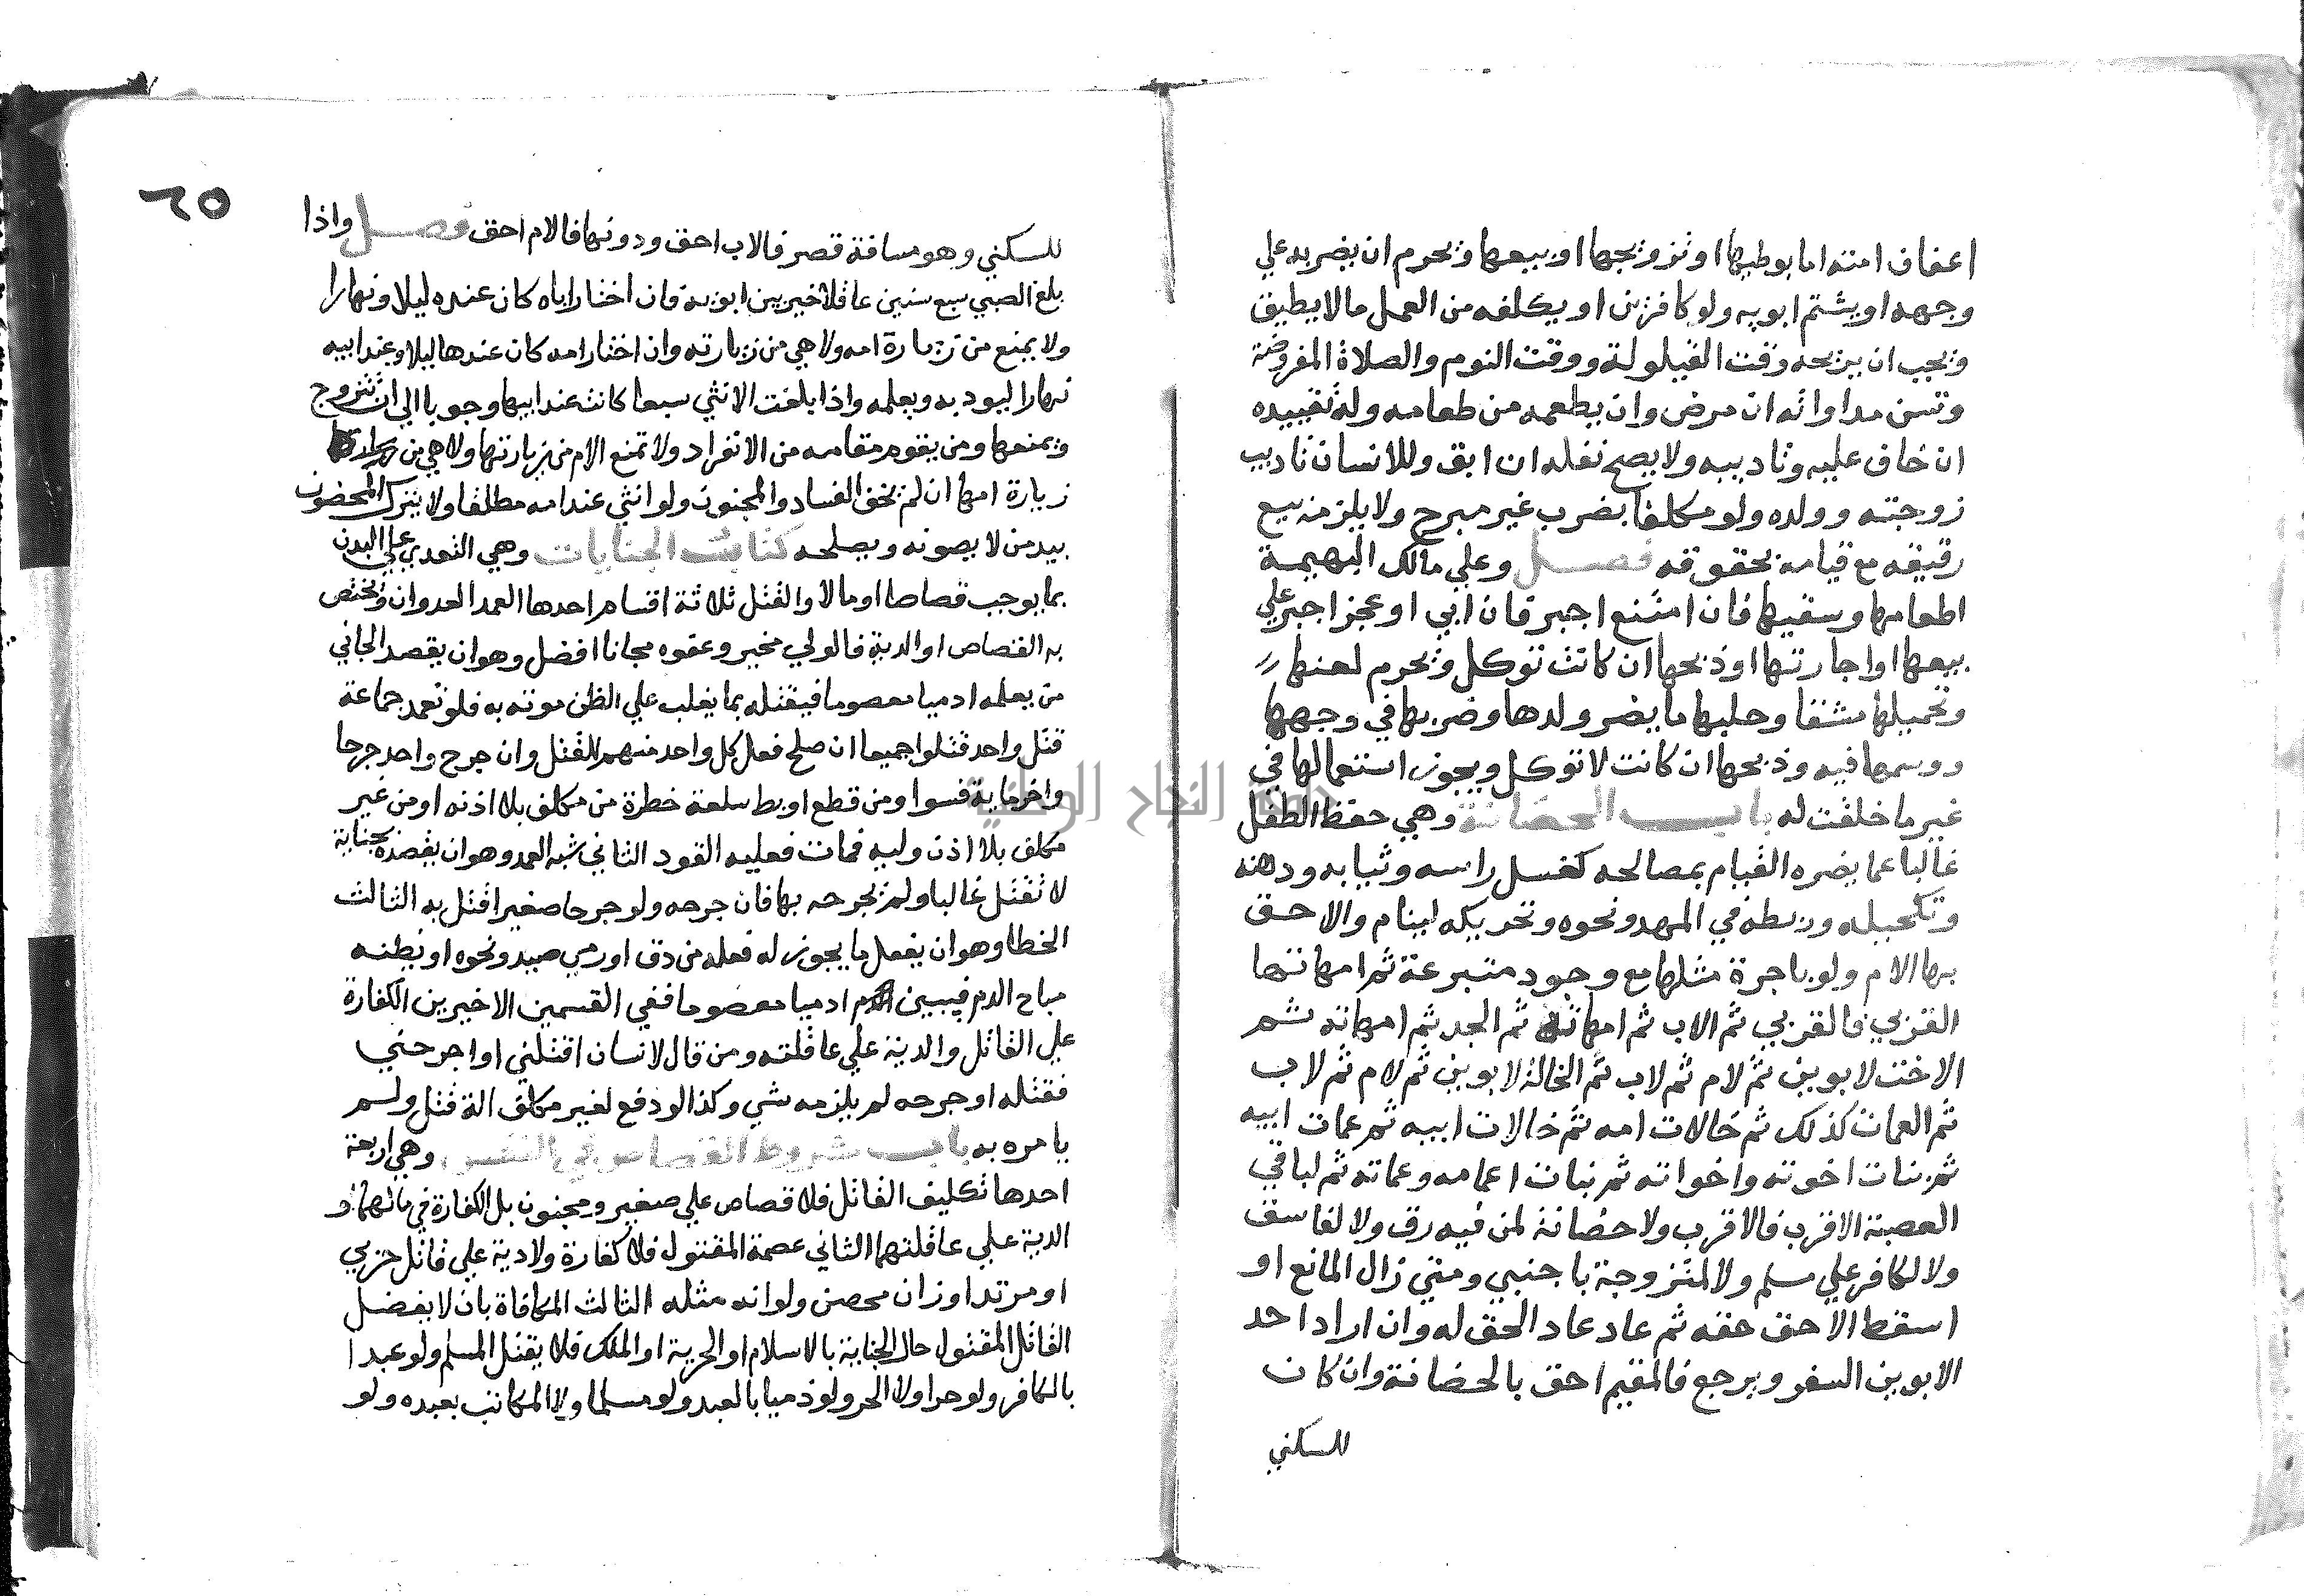 اعفاف امته اما بوطيها او تزويجها او بيعها ويحرم ان يضربه علي
وجهه او يشتم ابويه ولو كافرين او يكلفه من العمل ما لا يطيق
ويجب ان يريحه وقت القيلولة ووقت النوم والصلاة المفروضة
وتسن مداواته ان مرض وان يطعمه من طعامه وله تقييده
ان خاف عليه وتاديبه ولا يصح نفله ان ابق وللانسان تاديب
زوجته وولده ولو مكلفا بضرب غير مبرح ولا يلزمه بيع
رقيقه مع قيامه بحقوقه فصل وعلي مالك البهيمة
اطعامها وسقيها فان امتنع اجبر فان ابي او عجز اجبر علي
بيعها او اجارتها او ذبحها ان كانت توكل ويحرم لعنها
وتحميلها مشقا وحلبها ما يضر ولدها وضربها في وجهها
ووسمها فيه وذبحها ان كانت لا توكل ويجوز استعمالها في
غير ما خلقت له باب الحضانة وهي حفظ الطفل
غالبا عما يضره القيام بمصالحه كغسل راسه وثيابه ودهنه
وتكحيله وربطه في المهد ونحوه وتحريكه لينام والاحق
بها الام ولو باجرة مثلها مع وجود متبرعة ثم امهاتها
القربي فالقربي ثم الاب ثم امهاته ثم الجد ثم امهاته ثم
الاخت لابوين ثم لام ثم لاب ثم الخالة لابوين ثم لام ثم لاب
ثم العمات كذلك ثم خالات امه ثم خالات ابيه ثم عمات ابيه
ثم بنات اخوته واخواته ثم بنات اعمامه وعماته ثم لباقي
العصبة الاقرب فالاقرب ولا حضانة لمن فيه رق ولا لفاسق
ولا لكافر علي مسلم ولا لمتزوجة باجنبي ومتي زال المانع او
اسقط الاحق حقه ثم عاد عاد الحق له وان اراد احد
الابوين السفر ويرجع فالمقيم احق بالحضانة وان كان
للسكني
٦٥
للسكني وهو مسافة قصر فالاب احق ودونها فالام احق فصل واذا
بلغ الصبي سبع سنين عاقلا خير بين ابويه فان اختار اباه كان عنده ليلا ونهارا
ولا يمنع من زيارة امه ولا هي من زيارته وان اختار امه كان عندها ليلا وعند ابيه
نهارا ليودبه ويعلمه واذا بلغت الانثي سبعا كانت عند ابيها وجوبا الي ان تتزوج
ويمنعها ومن يقوم مقامه من الانفراد ولا تمنع الام من زيارتها ولا هي من
زيارة امها ان لم يخف الفساد والمجنون ولو انثي عند امه مطلقا ولا يترك المحضون
بيد من لا يصونه ويصلحه كتاب الجنايات وهي التعدي علي البدن
بما يوجب قصاصا او مالا والقتل ثلاثة اقسام احدها العمد العدوان ويختص
به القصاص او الدية فالولي مخير وعفوه مجانا افضل وهو ان يقصد الجاني
من يعلمه ادميا معصوما فيقتله بما يغلب علي الظن موته به فلو تعمد جماعة
قتل واحد قتلوا جميعا ان صلح فعل كل واحد منهم للقتل وان جرح واحد جرحا
واخر ماية فسوا ومن قطع او بط سلعة خطرة من مكلف بلا اذنه او من غير
مكلف بلا اذن وليه فمات فعليه القود الثاني شبه العمد وهو ان يقصده بجناية
لا تقتل غالبا ولم يجرحه بها فان جرحه ولو جرحا صغيرا قتل به الثالث
الخطا وهو ان يفعل ما يجوز له فعله من دق او رمي صيد ونحوه او يظنه
مباح الدم فيبين ادميا معصوما ففي القسمين الاخيرين الكفارة
علي القاتل والدية علي عاقلته ومن قال لانسان اقتلني او اجرحني
فقتله او جرحه لم يلزمه شي وكذا لو دفع لغير مكلف الة قتل ولم
يامره به باب شروط القصاص في النفس وهي اربعة
احدها تكليف القاتل فلا قصاص علي صغير ومجنون بل الكفارة في مالهما و
الدية علي عاقلتهما الثاني عصمة المقتول فلا كفارة ولا دية علي قاتل حربي
او مرتد او زان محصن ولو انه مثله الثالث المكافاة بان لا يفضل
القاتل المقتول حال الجناية بالاسلام او الحرية او الملك فلا يقتل المسلم ولو عبدا
بالكافر ولو حرا ولا الحر ولو ذميا بالعبد ولو مسلما ولا المكاتب بعبده ولو
جامعة النجاح الوطنية